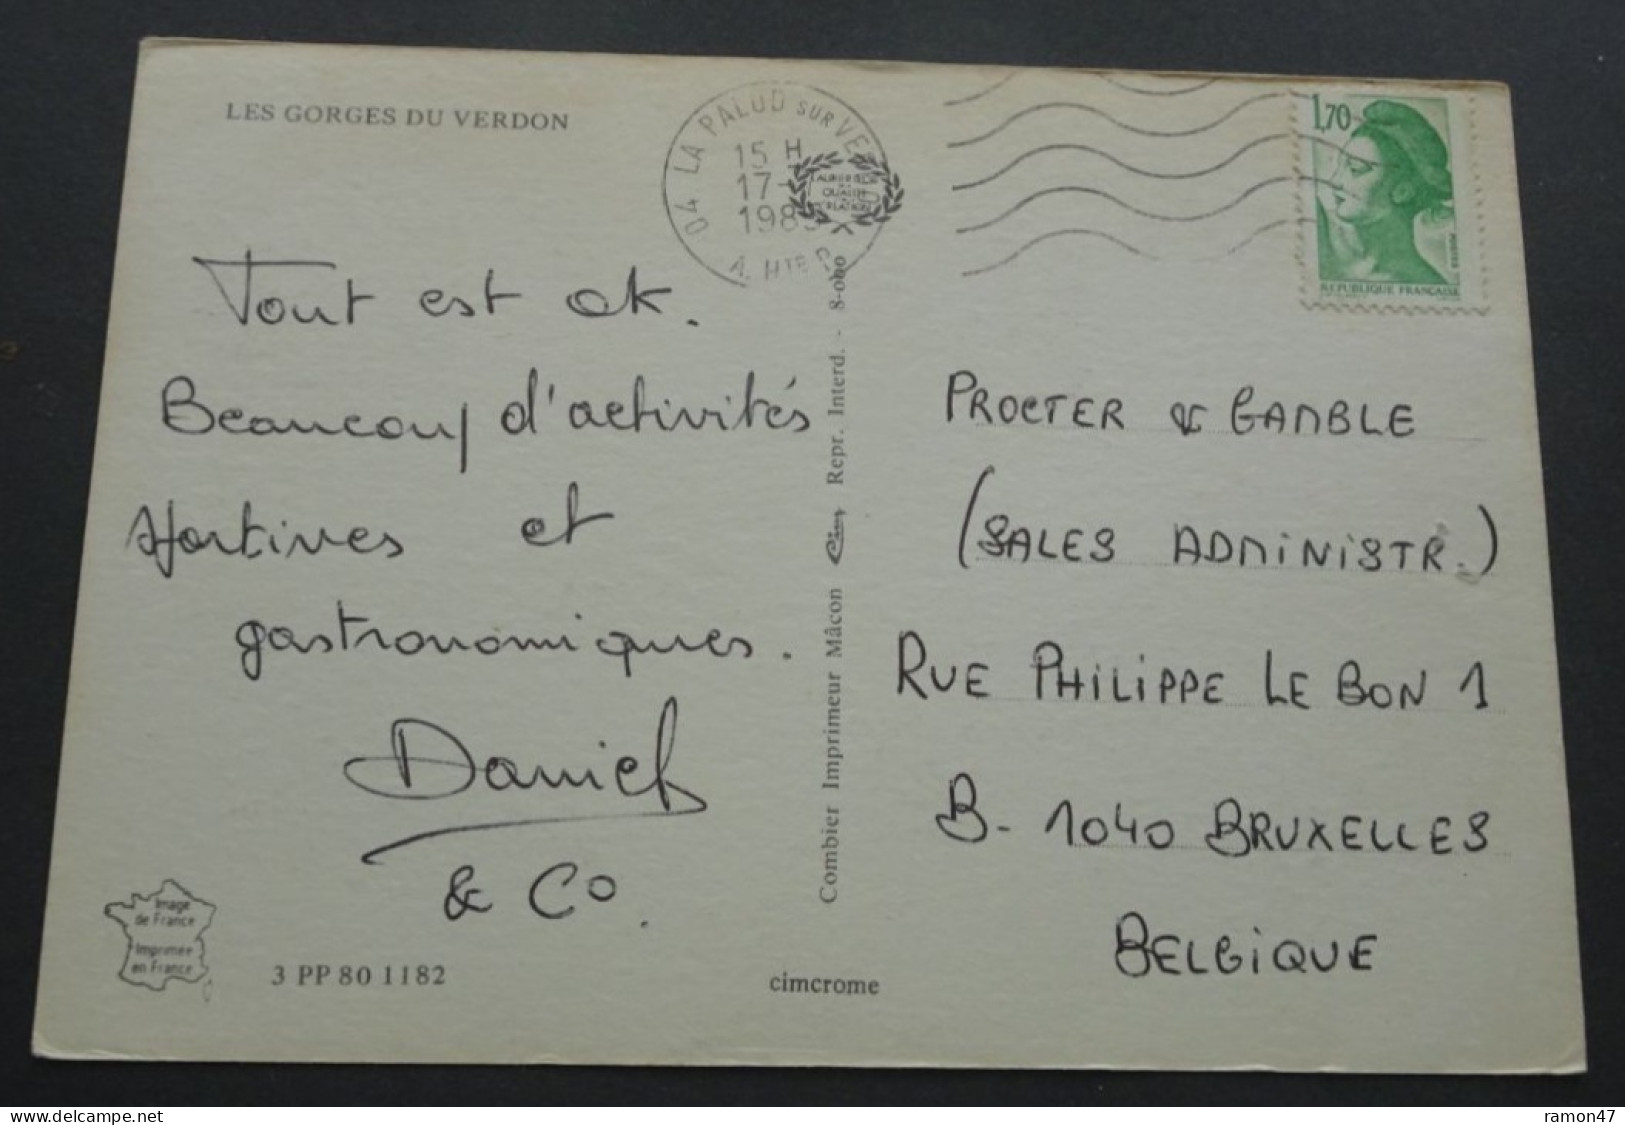 LES GORGES DU VERDON
04 LA PALUD SUR VE
15 H
17-
198
A. HTE P
1,70
REPUBLIQUE FRANÇAISE
Tout est ok.
Beaucoup d'activités
sportives et
gastronomiques.
Daniel
& Co.
Combier Imprimeur Mâcon Cim Repr. Interd. - 8-000
PROCTER & GAMBLE
(SALES ADMINISTR.)
RUE PHILIPPE LE BON 1
B- 1040 BRUXELLES
BELGIQUE
Image
de France
Imprimée
en France
3 PP 80 1182
cimcrome
www.delcampe.net
ramon47